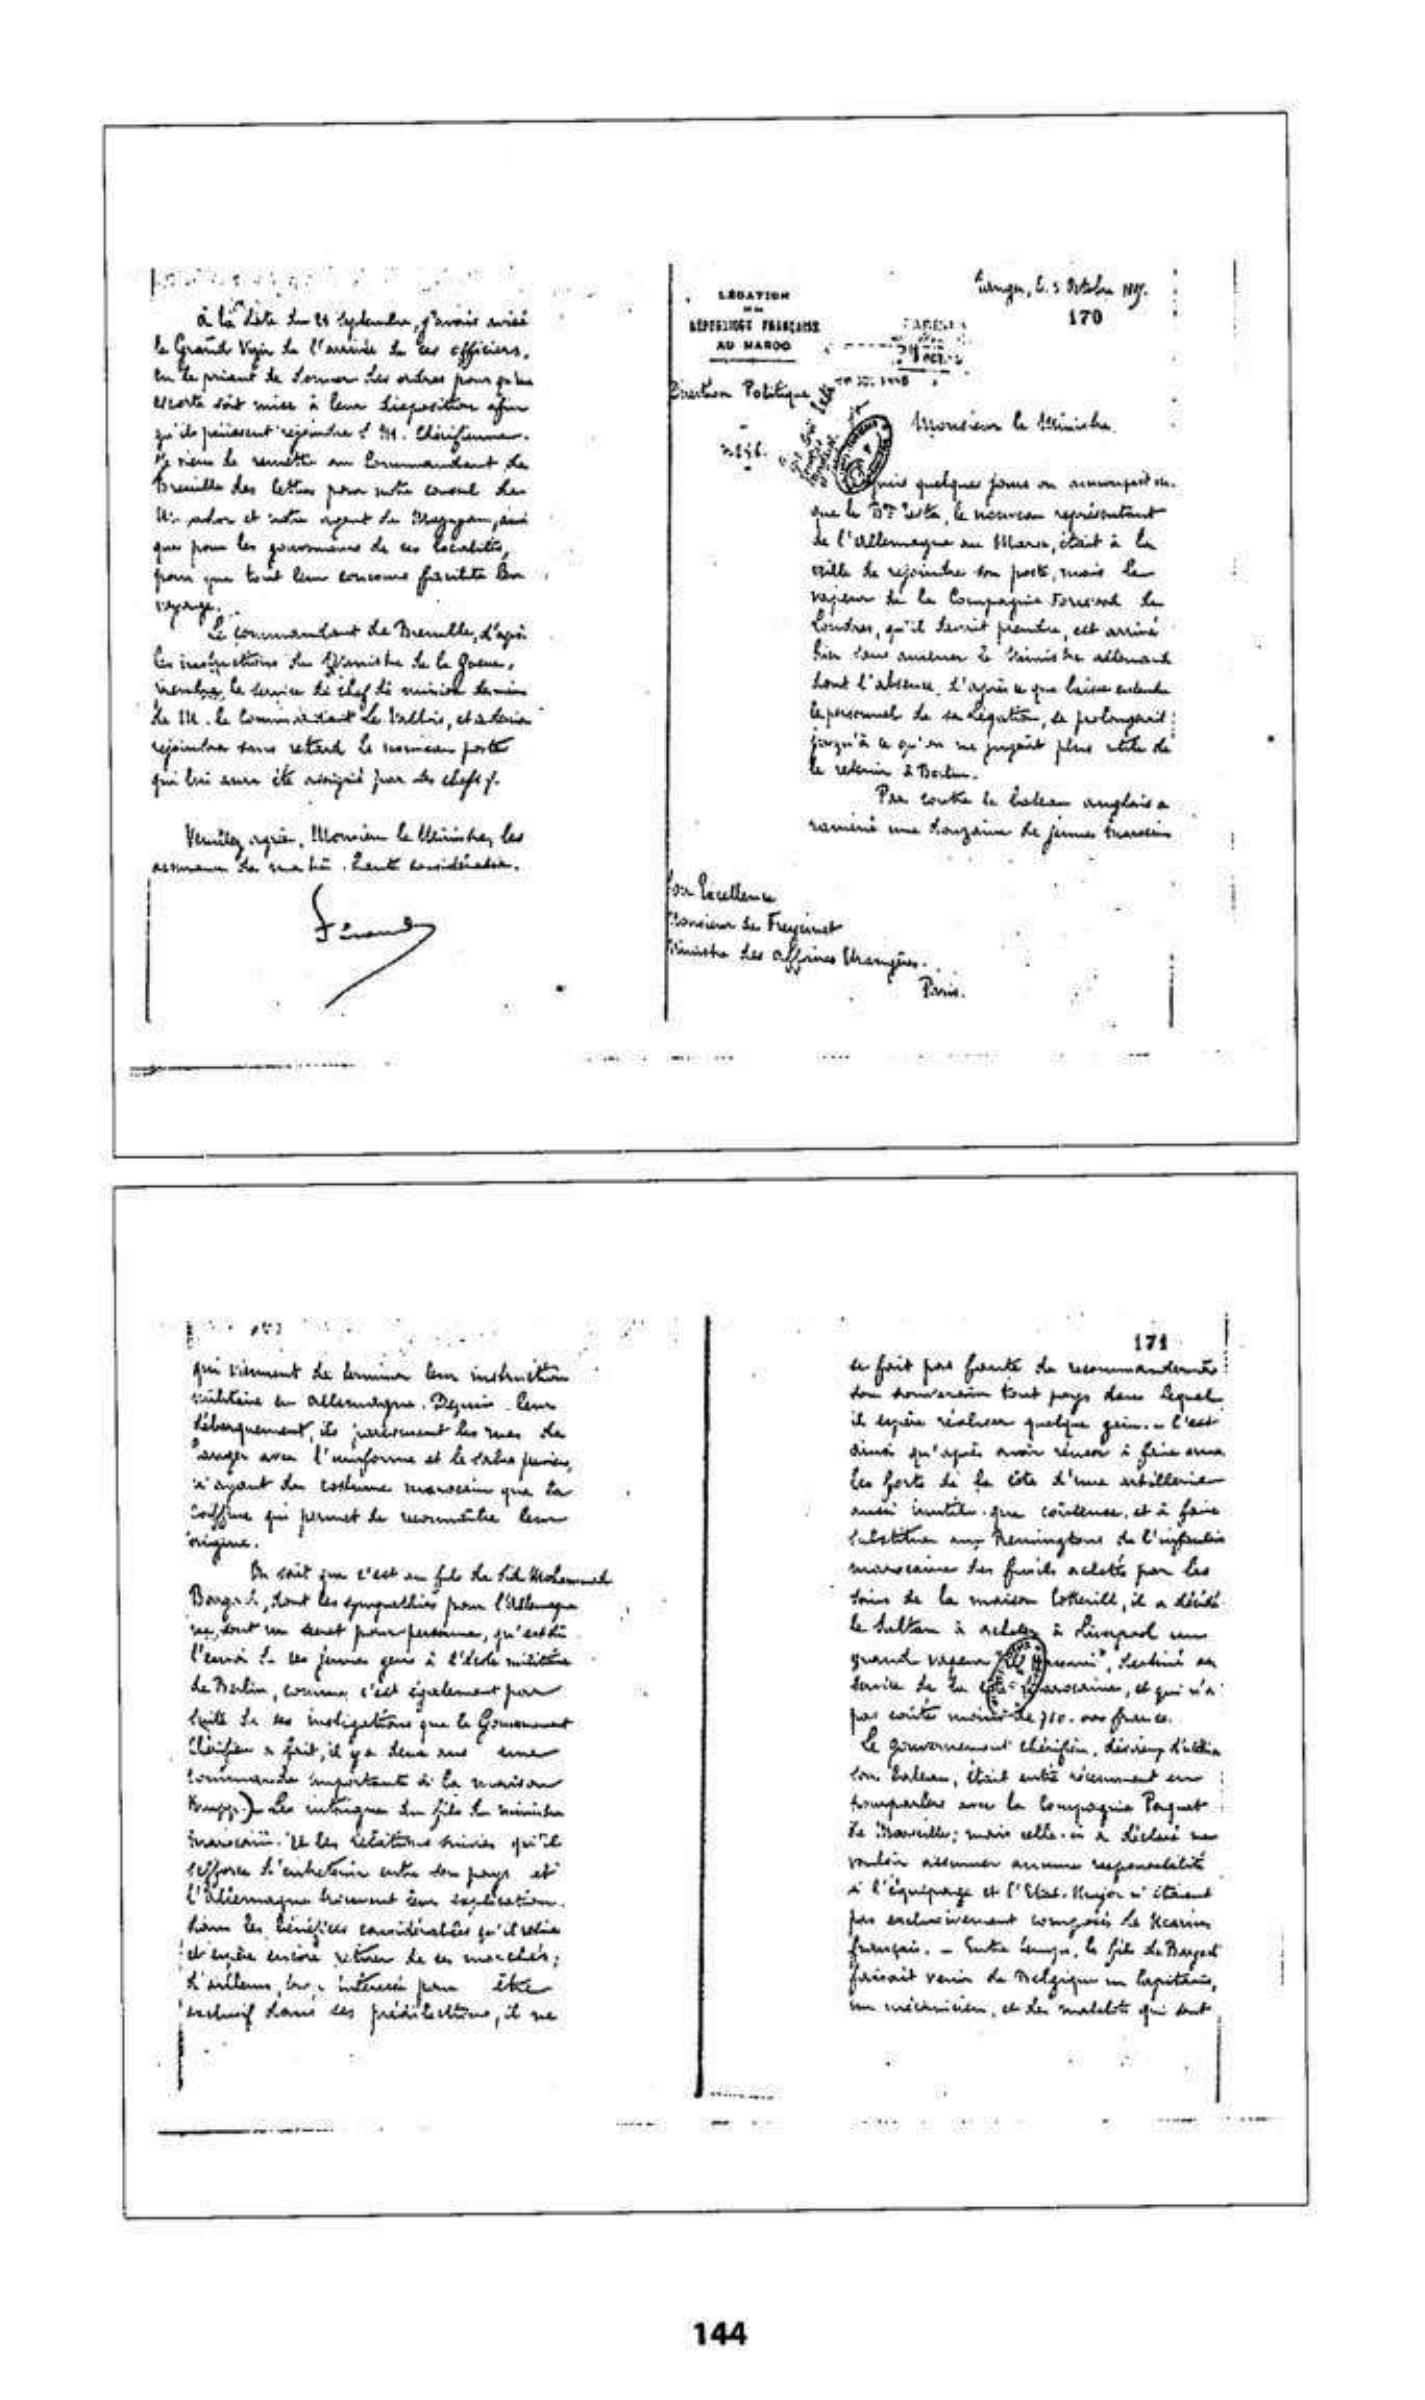 à la date du 21 Septembre, j'avais avisé
le Grand Vizir de l'arrivée de ces officiers,
en le priant de donner des ordres pour qu'une
escorte soit mise à leur disposition afin
qu'ils puissent rejoindre S. M. Chérifienne.
Je viens de remettre au Commandant de
Breuille des lettres pour notre consul de
et notre agent de Mazagan, ainsi
que pour les gouverneurs de ces localités,
pour que tout leur concours facilite
voyage.
Le commandant de Breuille, d'après
les instructions du Ministre de la Guerre,
le service de chef de mission
de M. le Commandant Le Vallois, et
rejoindra sans retard le nouveau poste
qui lui aura été assigné par ses chefs.
Veuillez agréer, Monsieur le Ministre, les
assurances de ma haute considération.
Féraud
LÉGATION
DE LA
RÉPUBLIQUE FRANÇAISE
AU MAROC
Direction Politique
Tanger, le 3 Octobre
170
Monsieur le Ministre,
Depuis quelques jours on
que le Bon Testa, le nouveau représentant
de l'Allemagne au Maroc, était à la
veille de rejoindre son poste, mais le
vapeur de la Compagnie Forwood de
Londres, qu'il devait prendre, est arrivé
hier sans amener le Ministre allemand
dont l'absence, d'après ce que laisse entendre
le personnel de sa Légation, se prolongerait
jusqu'à ce qu'on ne jugeât plus utile de
le retenir à Berlin.
Par contre le bateau anglais a
ramené une douzaine de jeunes marocains
Son Excellence
Monsieur de Freycinet
Ministre des Affaires Etrangères.
Paris.
qui viennent de terminer leur instruction
militaire en Allemagne. Depuis leur
débarquement, ils parcourent les rues de
Tanger avec l'uniforme et le sabre
n'ayant du costume marocain que la
coiffure qui permet de reconnaître leur
origine.
On sait que c'est au fils de Sid Mohammed
Bargach, dont les sympathies pour l'Allemagne
ne sont un secret pour personne, qu'est dû
l'envoi de ces jeunes gens à l'école militaire
de Berlin, comme c'est également par
suite de ses instigations que le Gouvernement
Chérifien a fait, il y a deux ans une
commande importante à la maison
Krupp. Les intrigues du fils du ministre
marocain et les relations suivies qu'il
s'efforce d'entretenir entre son pays et
l'Allemagne trouvent leur explication
dans les bénéfices considérables qu'il retire
et espère encore retirer de ces marchés;
d'ailleurs, trop intéressé pour être
exclusif dans ses prédilections, il ne
171
se fait pas faute de recommander à
son souverain tout pays dans lequel
il espère réaliser quelque gain. - C'est
ainsi qu'après avoir réussi à faire
les forts de la côte d'une artillerie
aussi inutile que coûteuse, et à faire
substituer aux Remingtons de l'infanterie
marocaine des fusils achetés par les
soins de la maison Cotterill, il a décidé
le Sultan à acheter à Liverpool un
grand vapeur destiné au
service de la côte marocaine, et qui n'a
pas coûté moins de francs.
Le gouvernement chérifien, désireux d'utiliser
son bateau, était entré récemment en
pourparlers avec la Compagnie Paquet
de Marseille; mais celle-ci a déclaré ne
vouloir assumer aucune responsabilité
si l'équipage et l'Etat-Major n'étaient
pas exclusivement composés de marins
français. - Entre temps, le fils de Bargach
faisait venir de Belgique un Capitaine,
un mécanicien, et des matelots qui sont
144